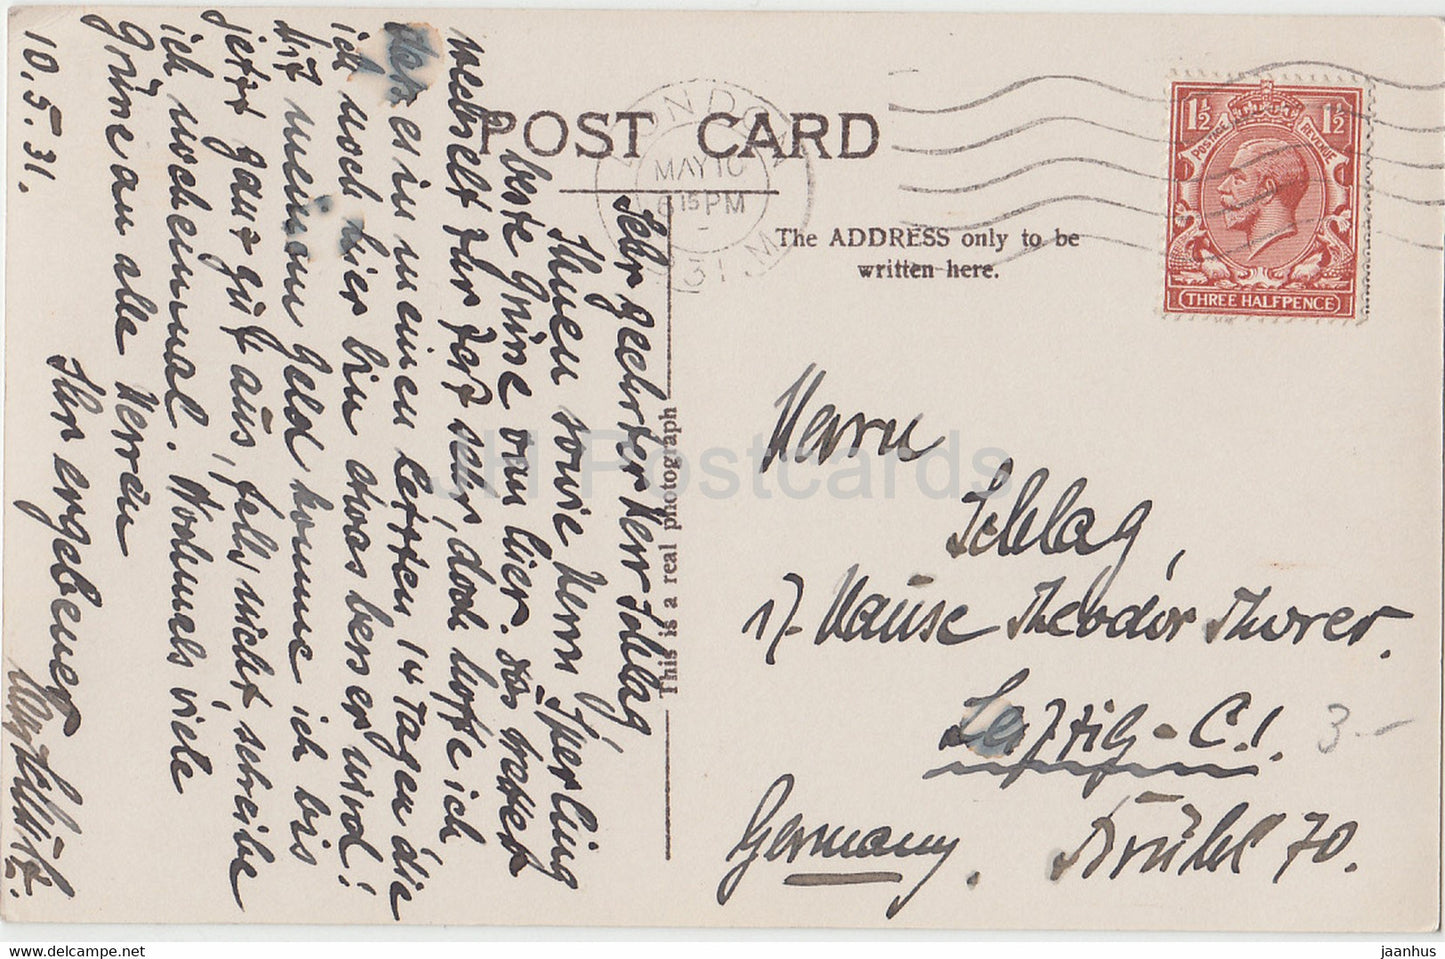 POST CARD
The ADDRESS only to be
written here.
This is a real photograph
LONDON
MAY 10
6 15 PM
31
1½ 1½
POSTAGE REVENUE
THREE HALFPENCE
Sehr geehrter Herr Schlag,
Ihnen sowie Herrn Sperling
beste Grüße von hier. Das Wetter
wechselt zur Zeit sehr, doch hoffe ich
daß es in meinen letzten 14 Tagen die
ich noch hier bin etwas besser wird!
Mit meinem Geld komme ich bis
jetzt ganz gut aus, falls nicht, schreibe
ich noch einmal. Nochmals viele
Grüße an alle Herren
Ihr ergebener
10.5.31.
Herrn
Schlag,
i/. Hause Theodor Thorer.
Leipzig-C.1.
Brühl 70.
Germany.
3.-
JH Postcards
hippostcard.com
jaanhus